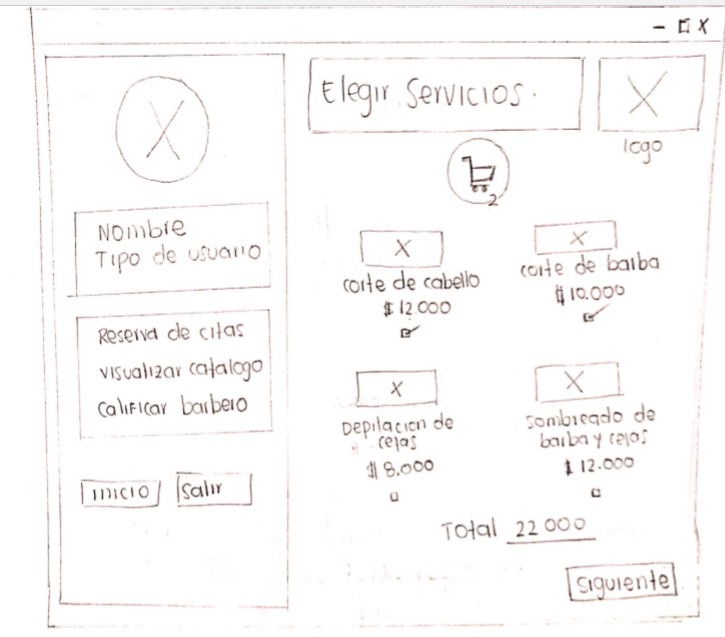 Nombre
Tipo de usuario
Reserva de citas
visualizar catalogo
calificar barbero
inicio
Salir
Elegir Servicios.
logo
2
corte de cabello
$ 12.000
corte de barba
$ 10.000
Depilacion de
cejas
$ 8.000
Sombreado de
barba y cejas
$ 12.000
Total 22 000
Siguiente